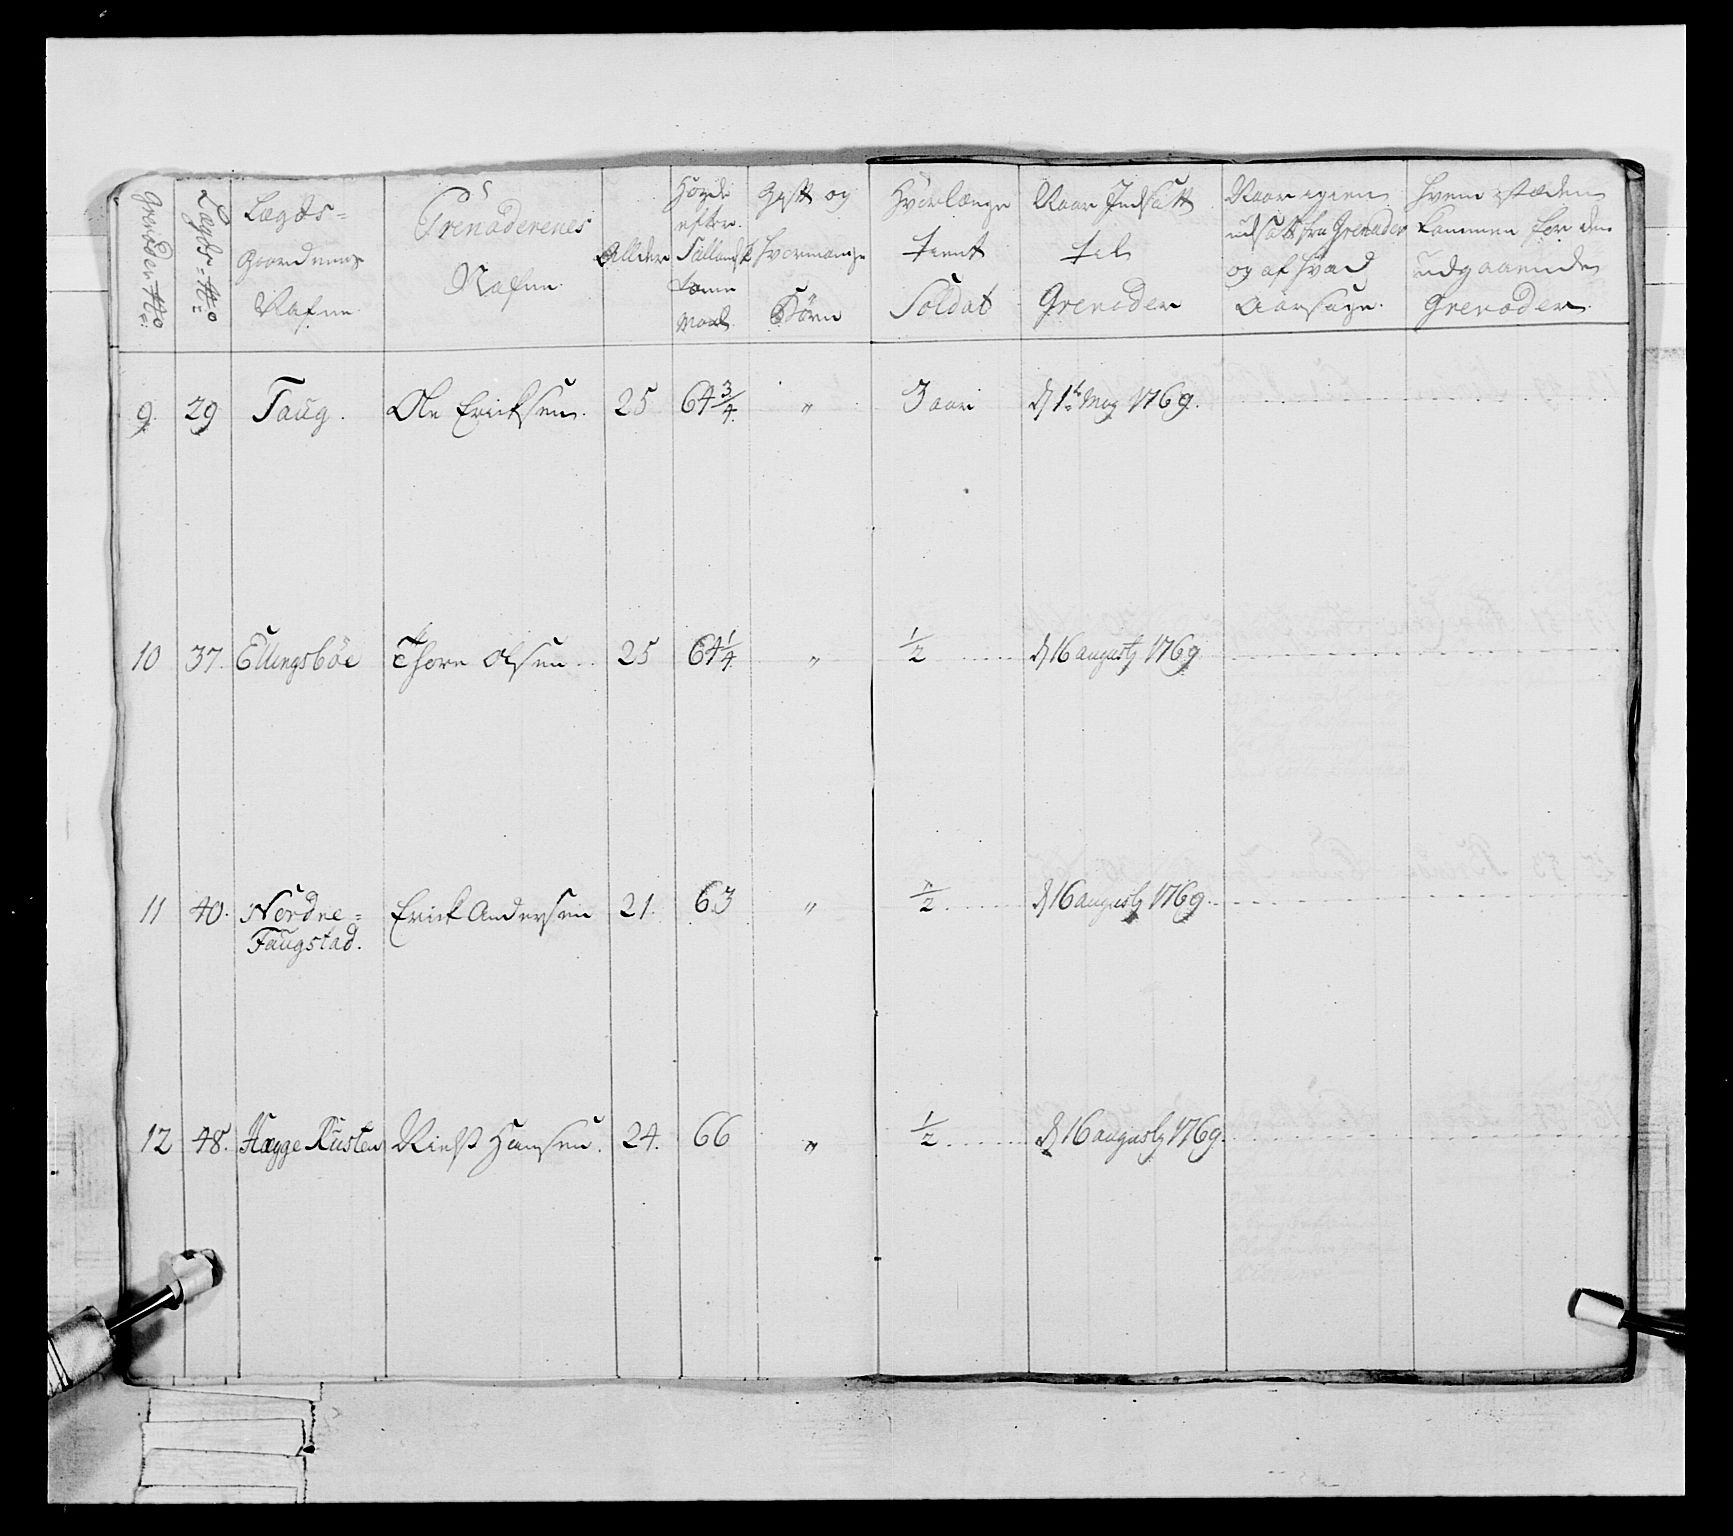 Grenader No
Lægds No
Lægds-
Gaardenes
Nafne
Grenaderenes
Nafne.
Allder
Høyde
efter
Siællandsk
tomme
Maal
Gift og
hvormange
Børn
Hvorlænge
tient
Soldat
Naar Indsatt
til
Grenader
Naar igien
udsatt fra Grenader
og af hvad
Aarsage.
Hvem i stæden
kommen for den
udgaaende
Grenader.
9. 29 Faug. Ole Ericksen. 25 64 3/4. " 3 aar d 1te May 1769.
10 37. Ellingsbøe Thore Olsen 25 64 1/4. " 1/2 d 16 augusty 1769
11 40. Nordre= Erick Andersen 21. 63 " 1/2 d 16 augusty 1769.
Faugstad.
12 48. Hægge Kusten Niels Hansen. 24. 66 " 1/2 d 16 augusty 1769.